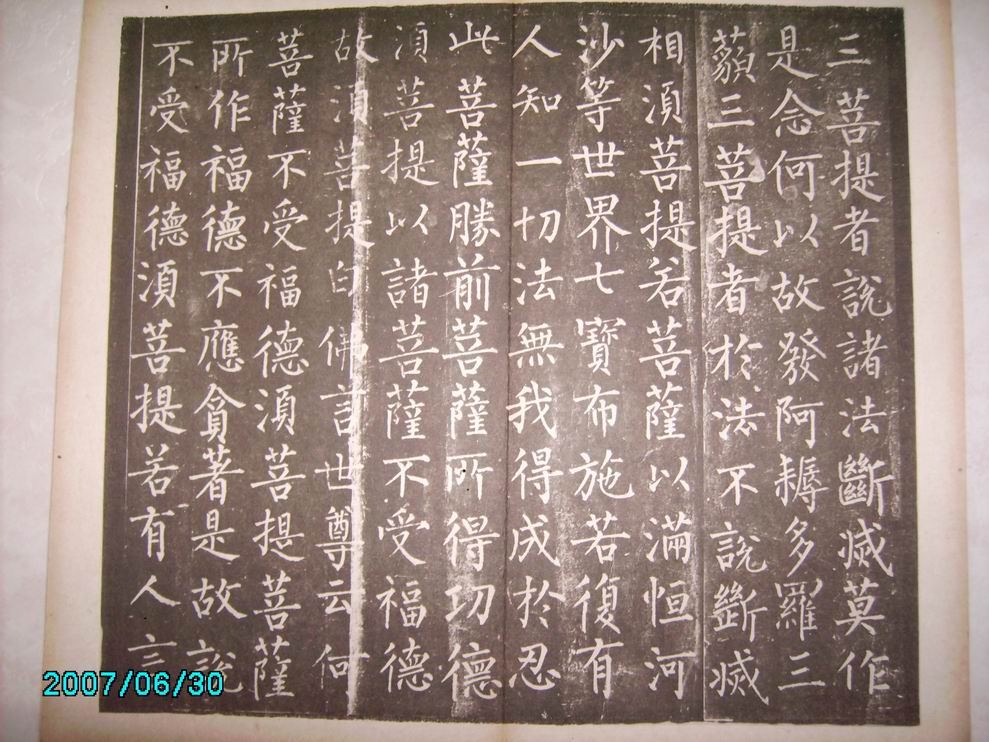 三菩提者說諸法斷滅莫作
是念何以故發阿耨多羅三
藐三菩提者於法不說斷滅
相須菩提若菩薩以滿恒河
沙等世界七寶布施若復有
人知一切法無我得成於忍
此菩薩勝前菩薩所得功德
須菩提以諸菩薩不受福德
故須菩提白佛言世尊云何
菩薩不受福德須菩提菩薩
所作福德不應貪著是故說
不受福德須菩提若有人言
2007/06/30